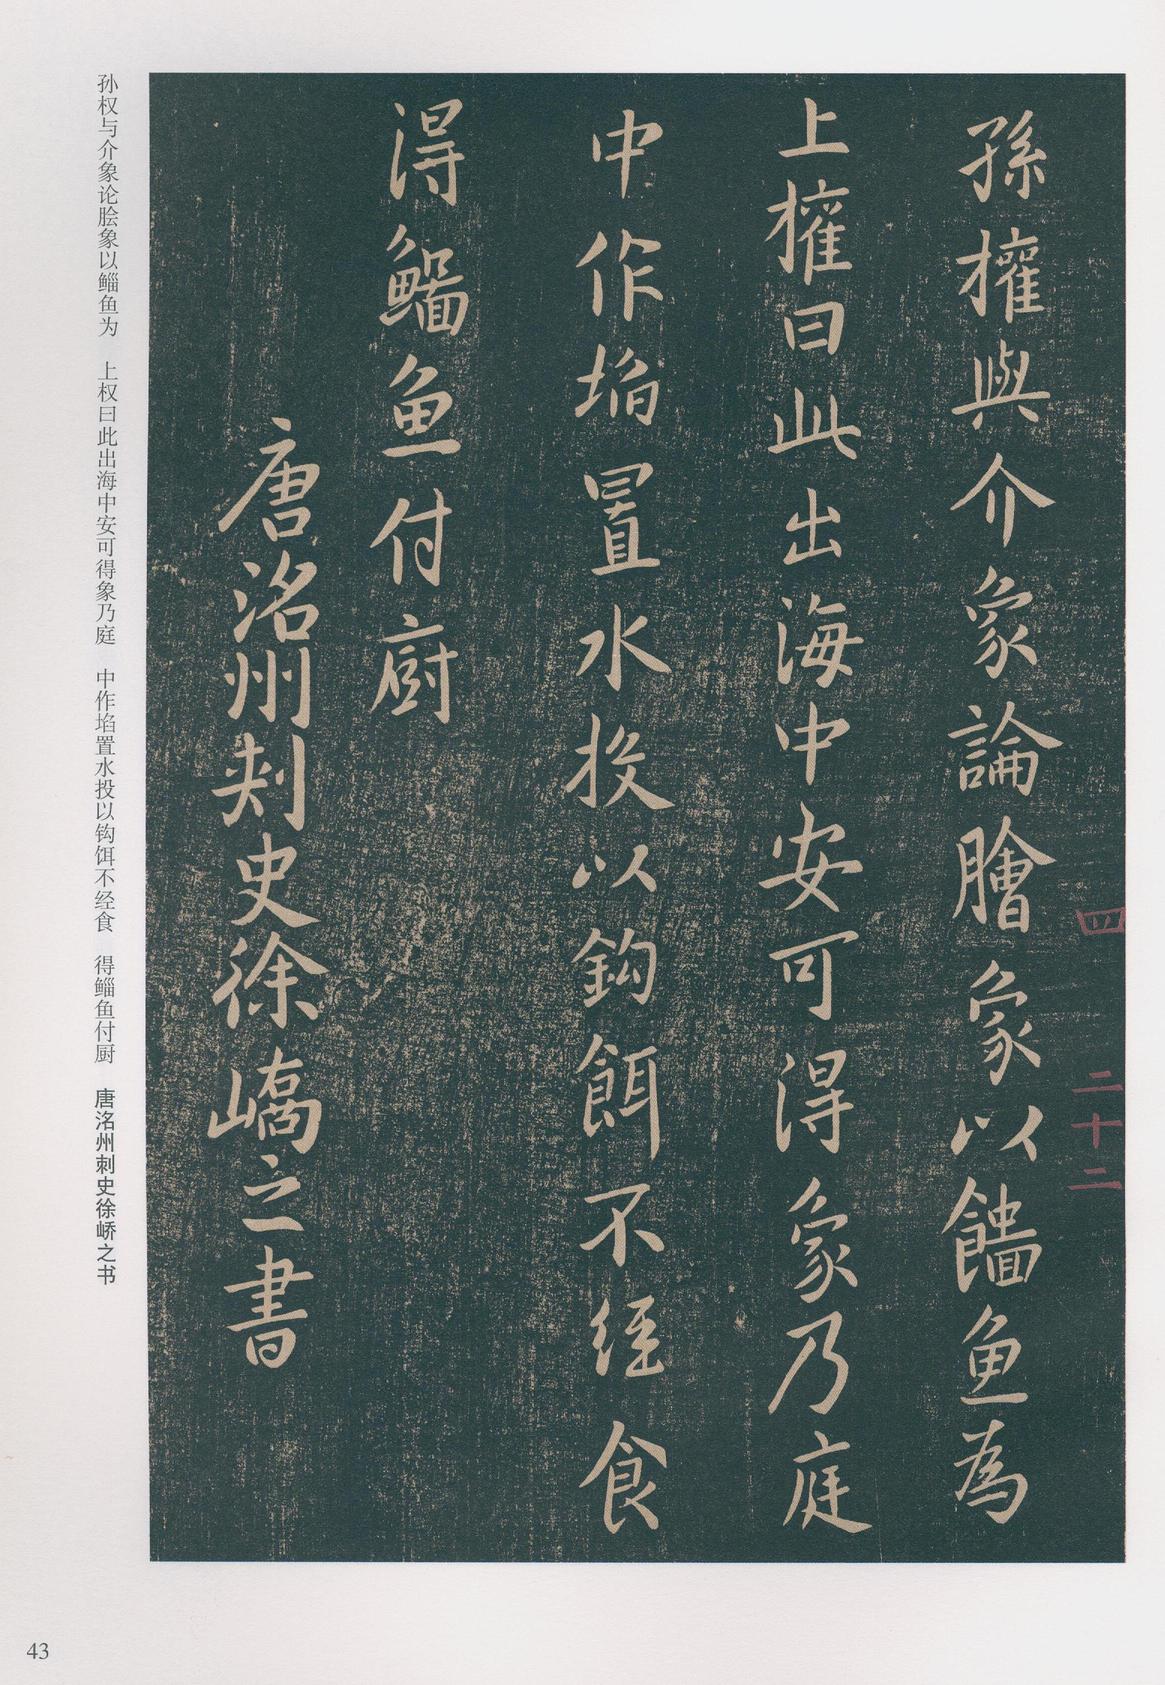 孫權與介象論膾象以鯔魚為
上權曰此出海中安可得象乃庭
中作埳置水投以鈎餌不經食
得鯔魚付廚
唐洺州刾史徐嶠之書
四 二十二
孙权与介象论脍象以鲻鱼为 上权曰此出海中安可得象乃庭 中作埳置水投以钩饵不经食 得鲻鱼付厨 唐洺州刺史徐峤之书
43